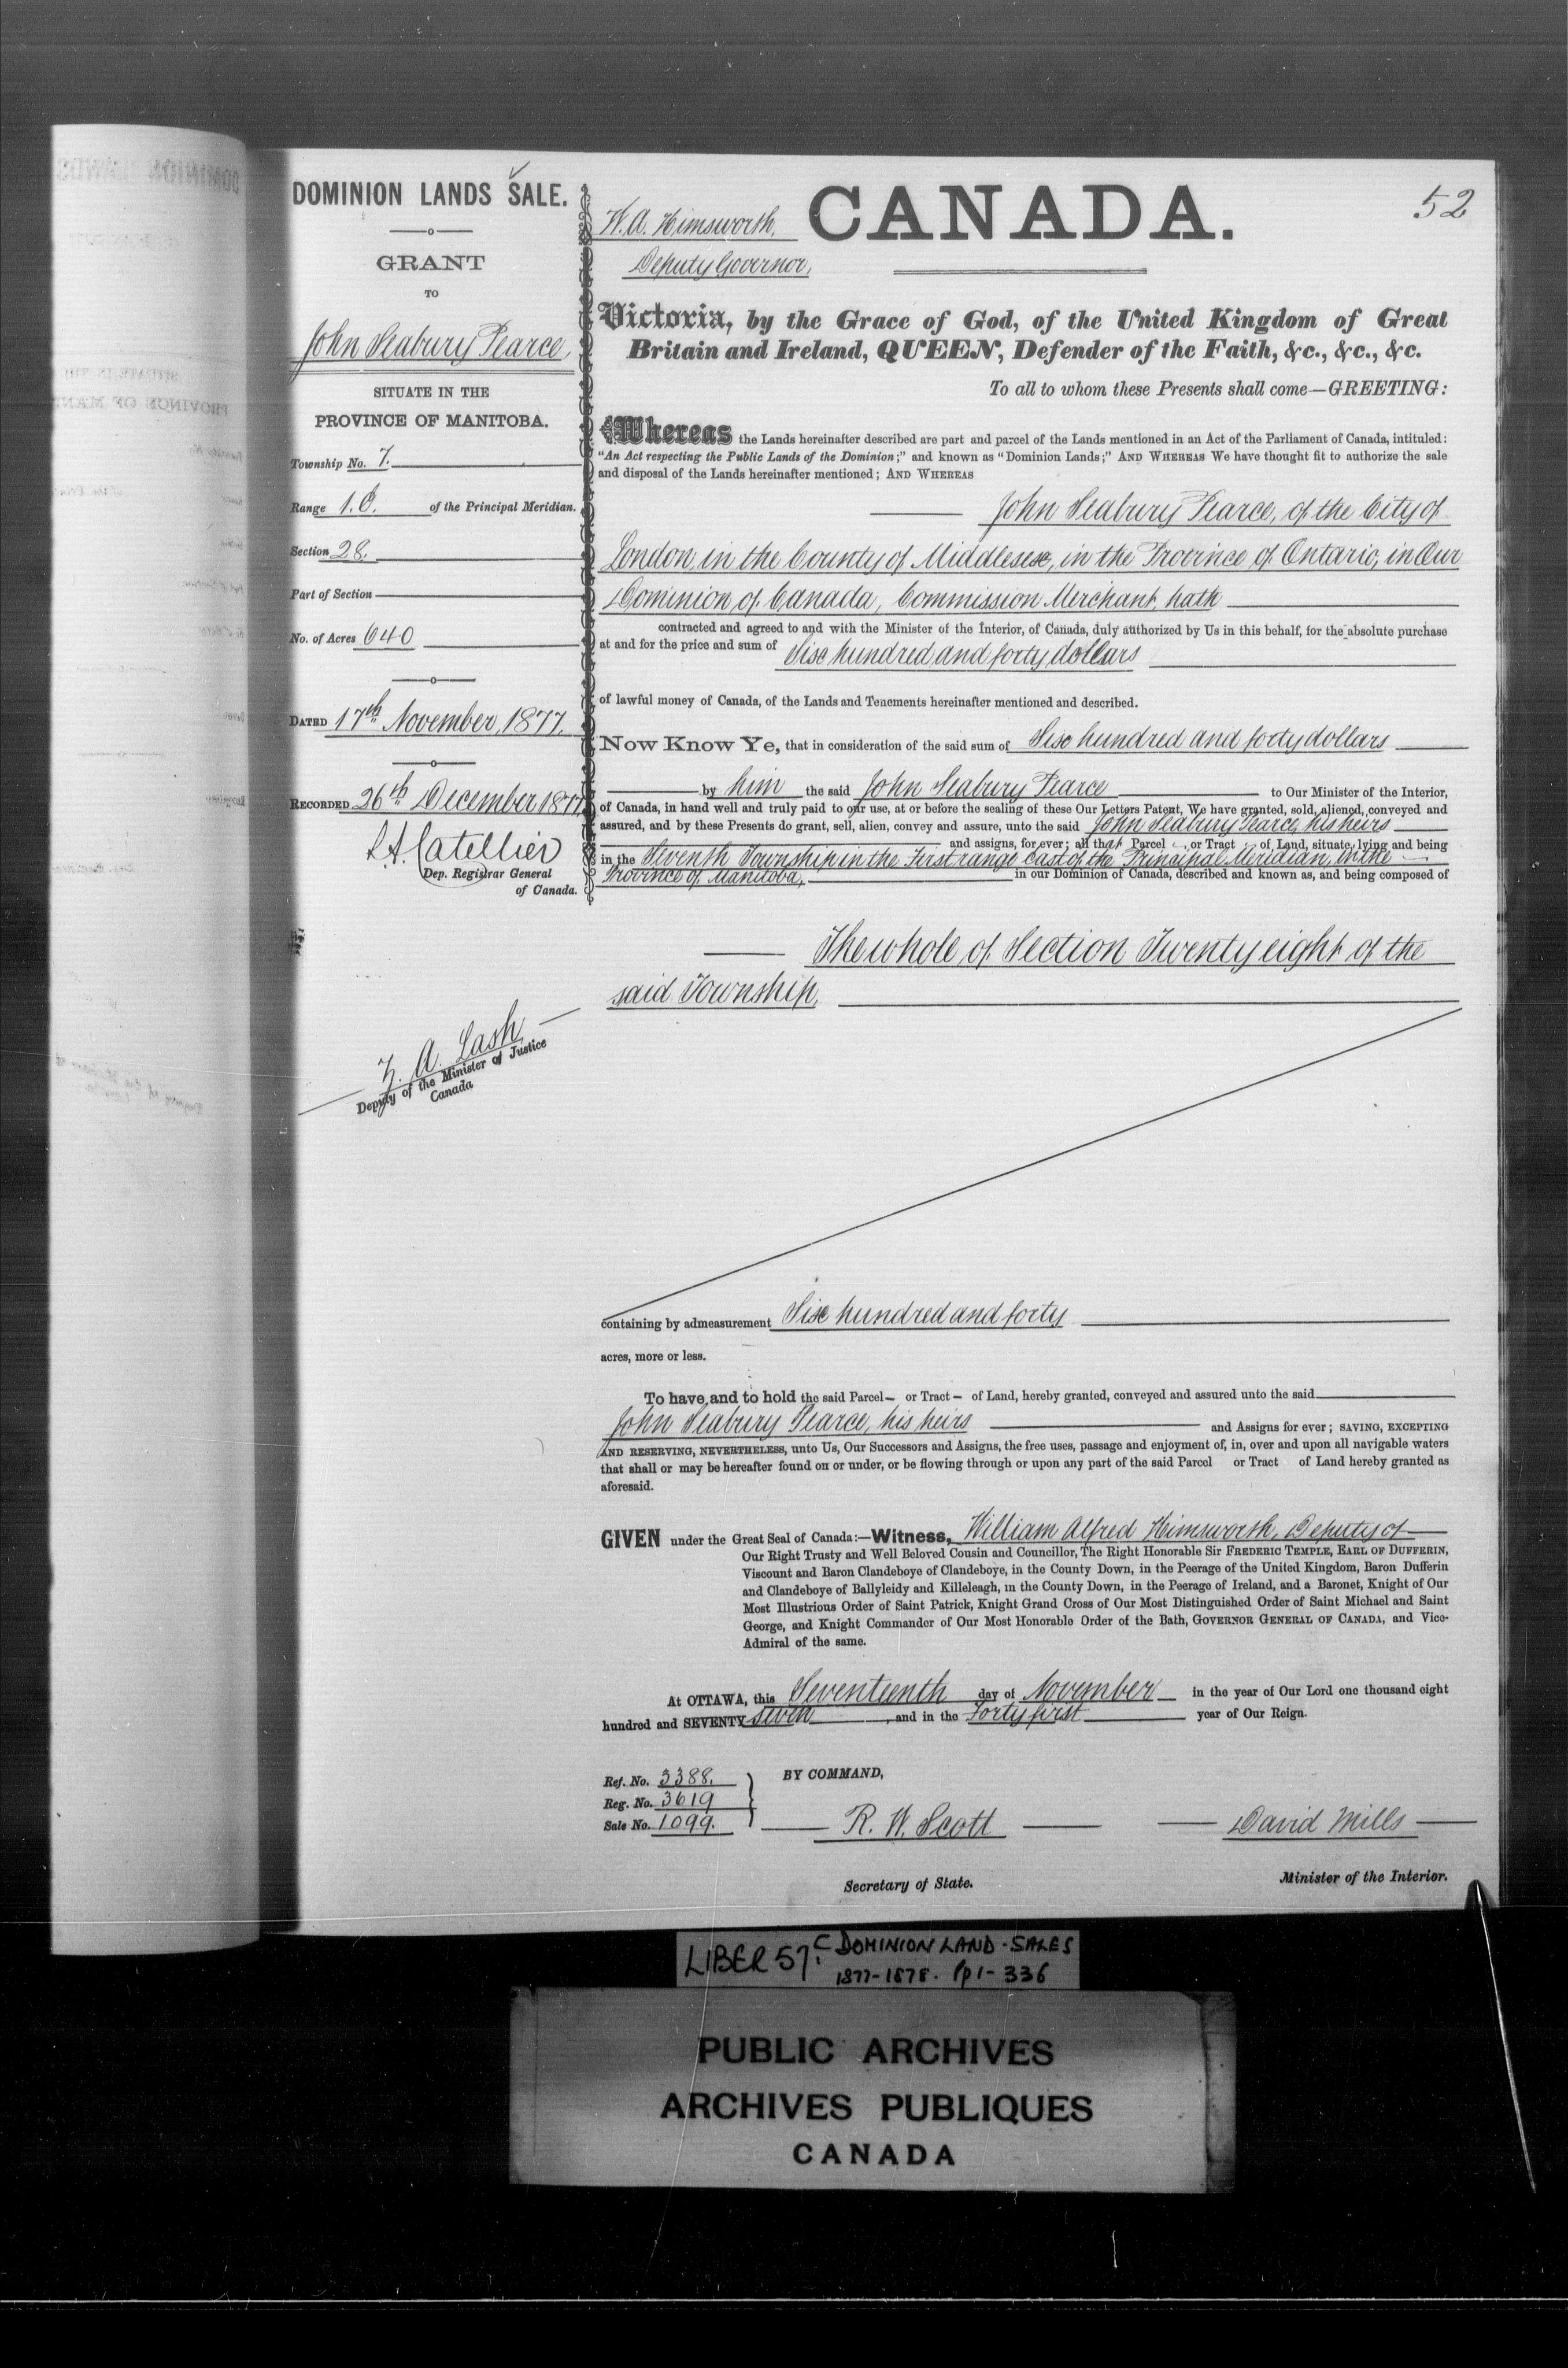 52
DOMINION LANDS SALE.
GRANT
TO
John Seabury Pearce,
SITUATE IN THE
PROVINCE OF MANITOBA.
Township No. 7.
Range 1. E. of the Principal Meridian.
Section 28.
Part of Section
No. of Acres 640
DATED 17th November, 1877.
RECORDED 26th December 1877
L. A. Catellier
Dep. Registrar General
of Canada.
Z. A. Lash
Deputy of the Minister of Justice
Canada
W. A. Himsworth,
Deputy Governor,
CANADA.
Victoria, by the Grace of God, of the United Kingdom of Great
Britain and Ireland, QUEEN, Defender of the Faith, &c., &c., &c.
To all to whom these Presents shall come—GREETING:
Whereas the Lands hereinafter described are part and parcel of the Lands mentioned in an Act of the Parliament of Canada, intituled:
"An Act respecting the Public Lands of the Dominion;" and known as "Dominion Lands;" AND WHEREAS We have thought fit to authorize the sale
and disposal of the Lands hereinafter mentioned; AND WHEREAS
John Seabury Pearce, of the City of
London, in the County of Middlesex, in the Province of Ontario, in Our
Dominion of Canada, Commission Merchant, hath
contracted and agreed to and with the Minister of the Interior, of Canada, duly authorized by Us in this behalf, for the absolute purchase
at and for the price and sum of Six hundred and forty dollars
of lawful money of Canada, of the Lands and Tenements hereinafter mentioned and described.
Now Know Ye, that in consideration of the said sum of Six hundred and forty dollars
by him the said John Seabury Pearce to Our Minister of the Interior,
of Canada, in hand well and truly paid to our use, at or before the sealing of these Our Letters Patent, We have granted, sold, aliened, conveyed and
assured, and by these Presents do grant, sell, alien, convey and assure, unto the said John Seabury Pearce, his heirs
and assigns, for ever; all that Parcel , or Tract of Land, situate, lying and being
in the Seventh Township in the First range East of the Principal Meridian, in the
Province of Manitoba, in our Dominion of Canada, described and known as, and being composed of
The whole of Section Twenty eight of the
said Township,
containing by admeasurement Six hundred and forty
acres, more or less.
To have and to hold the said Parcel – or Tract – of Land, hereby granted, conveyed and assured unto the said
John Seabury Pearce, his heirs and Assigns for ever; SAVING, EXCEPTING
AND RESERVING, NEVERTHELESS, unto Us, Our Successors and Assigns, the free uses, passage and enjoyment of, in, over and upon all navigable waters
that shall or may be hereafter found on or under, or be flowing through or upon any part of the said Parcel or Tract of Land hereby granted as
aforesaid.
GIVEN under the Great Seal of Canada:—Witness, William Alfred Himsworth, Deputy of
Our Right Trusty and Well Beloved Cousin and Councillor, The Right Honorable Sir FREDERIC TEMPLE, EARL OF DUFFERIN,
Viscount and Baron Clandeboye of Clandeboye, in the County Down, in the Peerage of the United Kingdom, Baron Dufferin
and Clandeboye of Ballyleidy and Killeleagh, in the County Down, in the Peerage of Ireland, and a Baronet, Knight of Our
Most Illustrious Order of Saint Patrick, Knight Grand Cross of Our Most Distinguished Order of Saint Michael and Saint
George, and Knight Commander of Our Most Honorable Order of the Bath, GOVERNOR GENERAL OF CANADA, and Vice-
Admiral of the same.
At OTTAWA, this Seventeenth day of November in the year of Our Lord one thousand eight
hundred and SEVENTY seven, and in the Forty first year of Our Reign.
Ref. No. 3388.
Reg. No. 3619
Sale No. 1099.
BY COMMAND,
R. W. Scott
Secretary of State.
David Mills
Minister of the Interior.
LIBER 57. C DOMINION LAND - SALES
1877-1878. pp 1-336
PUBLIC ARCHIVES
ARCHIVES PUBLIQUES
CANADA